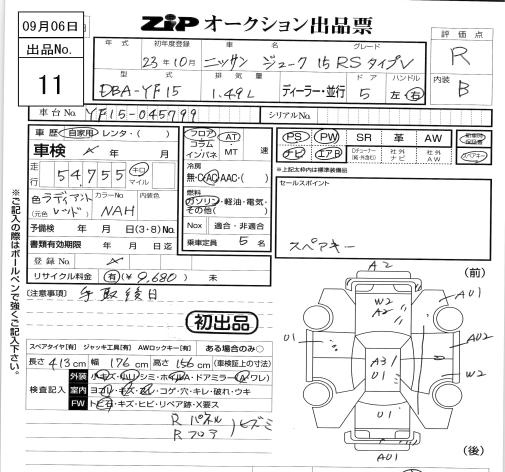 09月06日
出品No.
11
ZIP オークション出品票
評価点
R
内装
B
年式 初年度登録 車名 グレード
23年10月 ニッサン ジューク 15RSタイプV
型式 排気量 ドア ハンドル
DBA-YF15 1.49L ディーラー・並行 5 左・右
車台No. YF15-045799 シリアルNo.
車歴 自家用・レンタ・( )
車検 年 月
走行 54,755 キロ マイル
色 ラディアント カラーNo. 内装色
(元色 レッド) NAH
予備検 年 月 日(3・8)No.
書類有効期限 年 月 日迄
登録No.
リサイクル料金 有(¥9,680) 未
フロア コラム インパネ AT・MT 速
冷房
無・C・AC・AAC・( )
燃料
ガソリン・軽油・電気・その他( )
Nox 適合・非適合
乗車定員 5 名
PS PW SR 革 AW
ナビ エアB 社外ナビ 社外AW
スペアキー
※上記太枠内は標準装備品
セールスポイント
スペアキー
[注意事項] 車取後日
初出品
スペアタイヤ[有] ジャッキ工具[有] AWロックキー[有] ある場合のみ○
長さ 413cm 幅 176cm 高さ 156cm (車検証上の寸法)
検査記入
外装
室内 ヨゴレ・キズ・スレ・コゲ・穴・キレ・破レ・ウキ
FW トビ石・キズ・ヒビ・リペア跡・X要ス
Rパネル
Rフロア
ヒズミ
※ご記入の際はボールペンで強くご記入下さい。
(前)
A2
W2
A2
A01
01
A31
01
A02
W2
01
A01
(後)